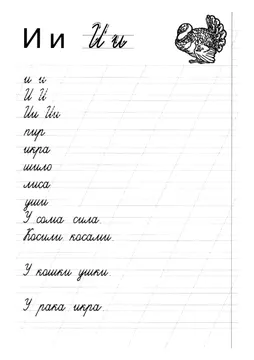 И и И и
и и
И И
Ии Ии
пир
икра
шило
лиса
уши
У сома сила.
Косили косами.
У кошки ушки.
У рака икра.